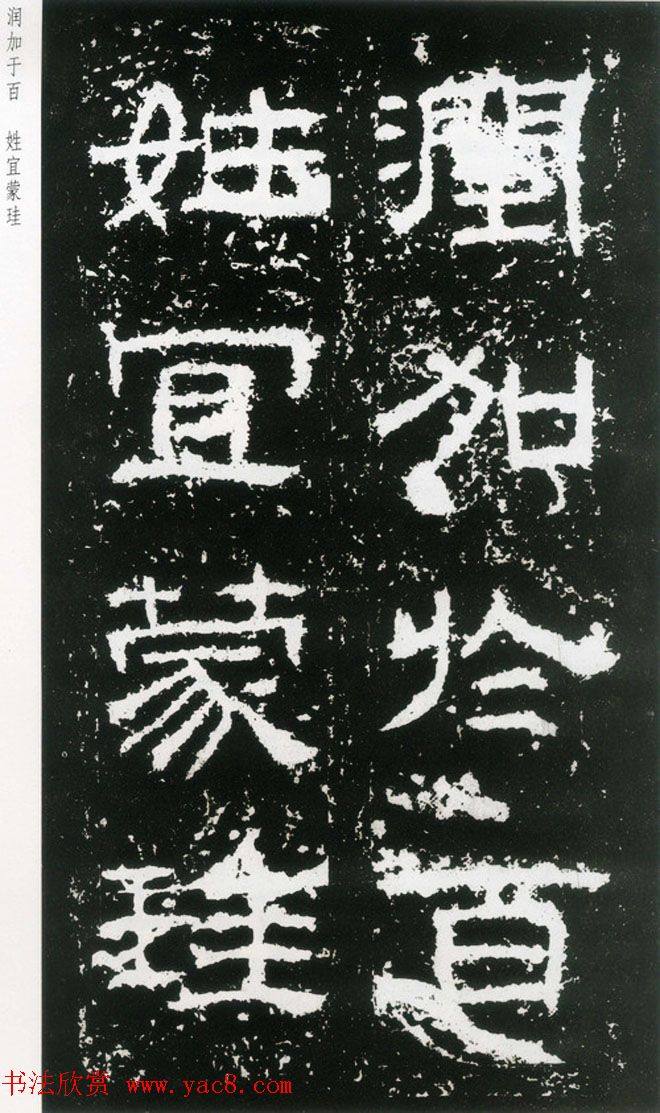 潤加於百
姓宜蒙珪
润加于百 姓宜蒙珪
书法欣赏 www.yac8.com